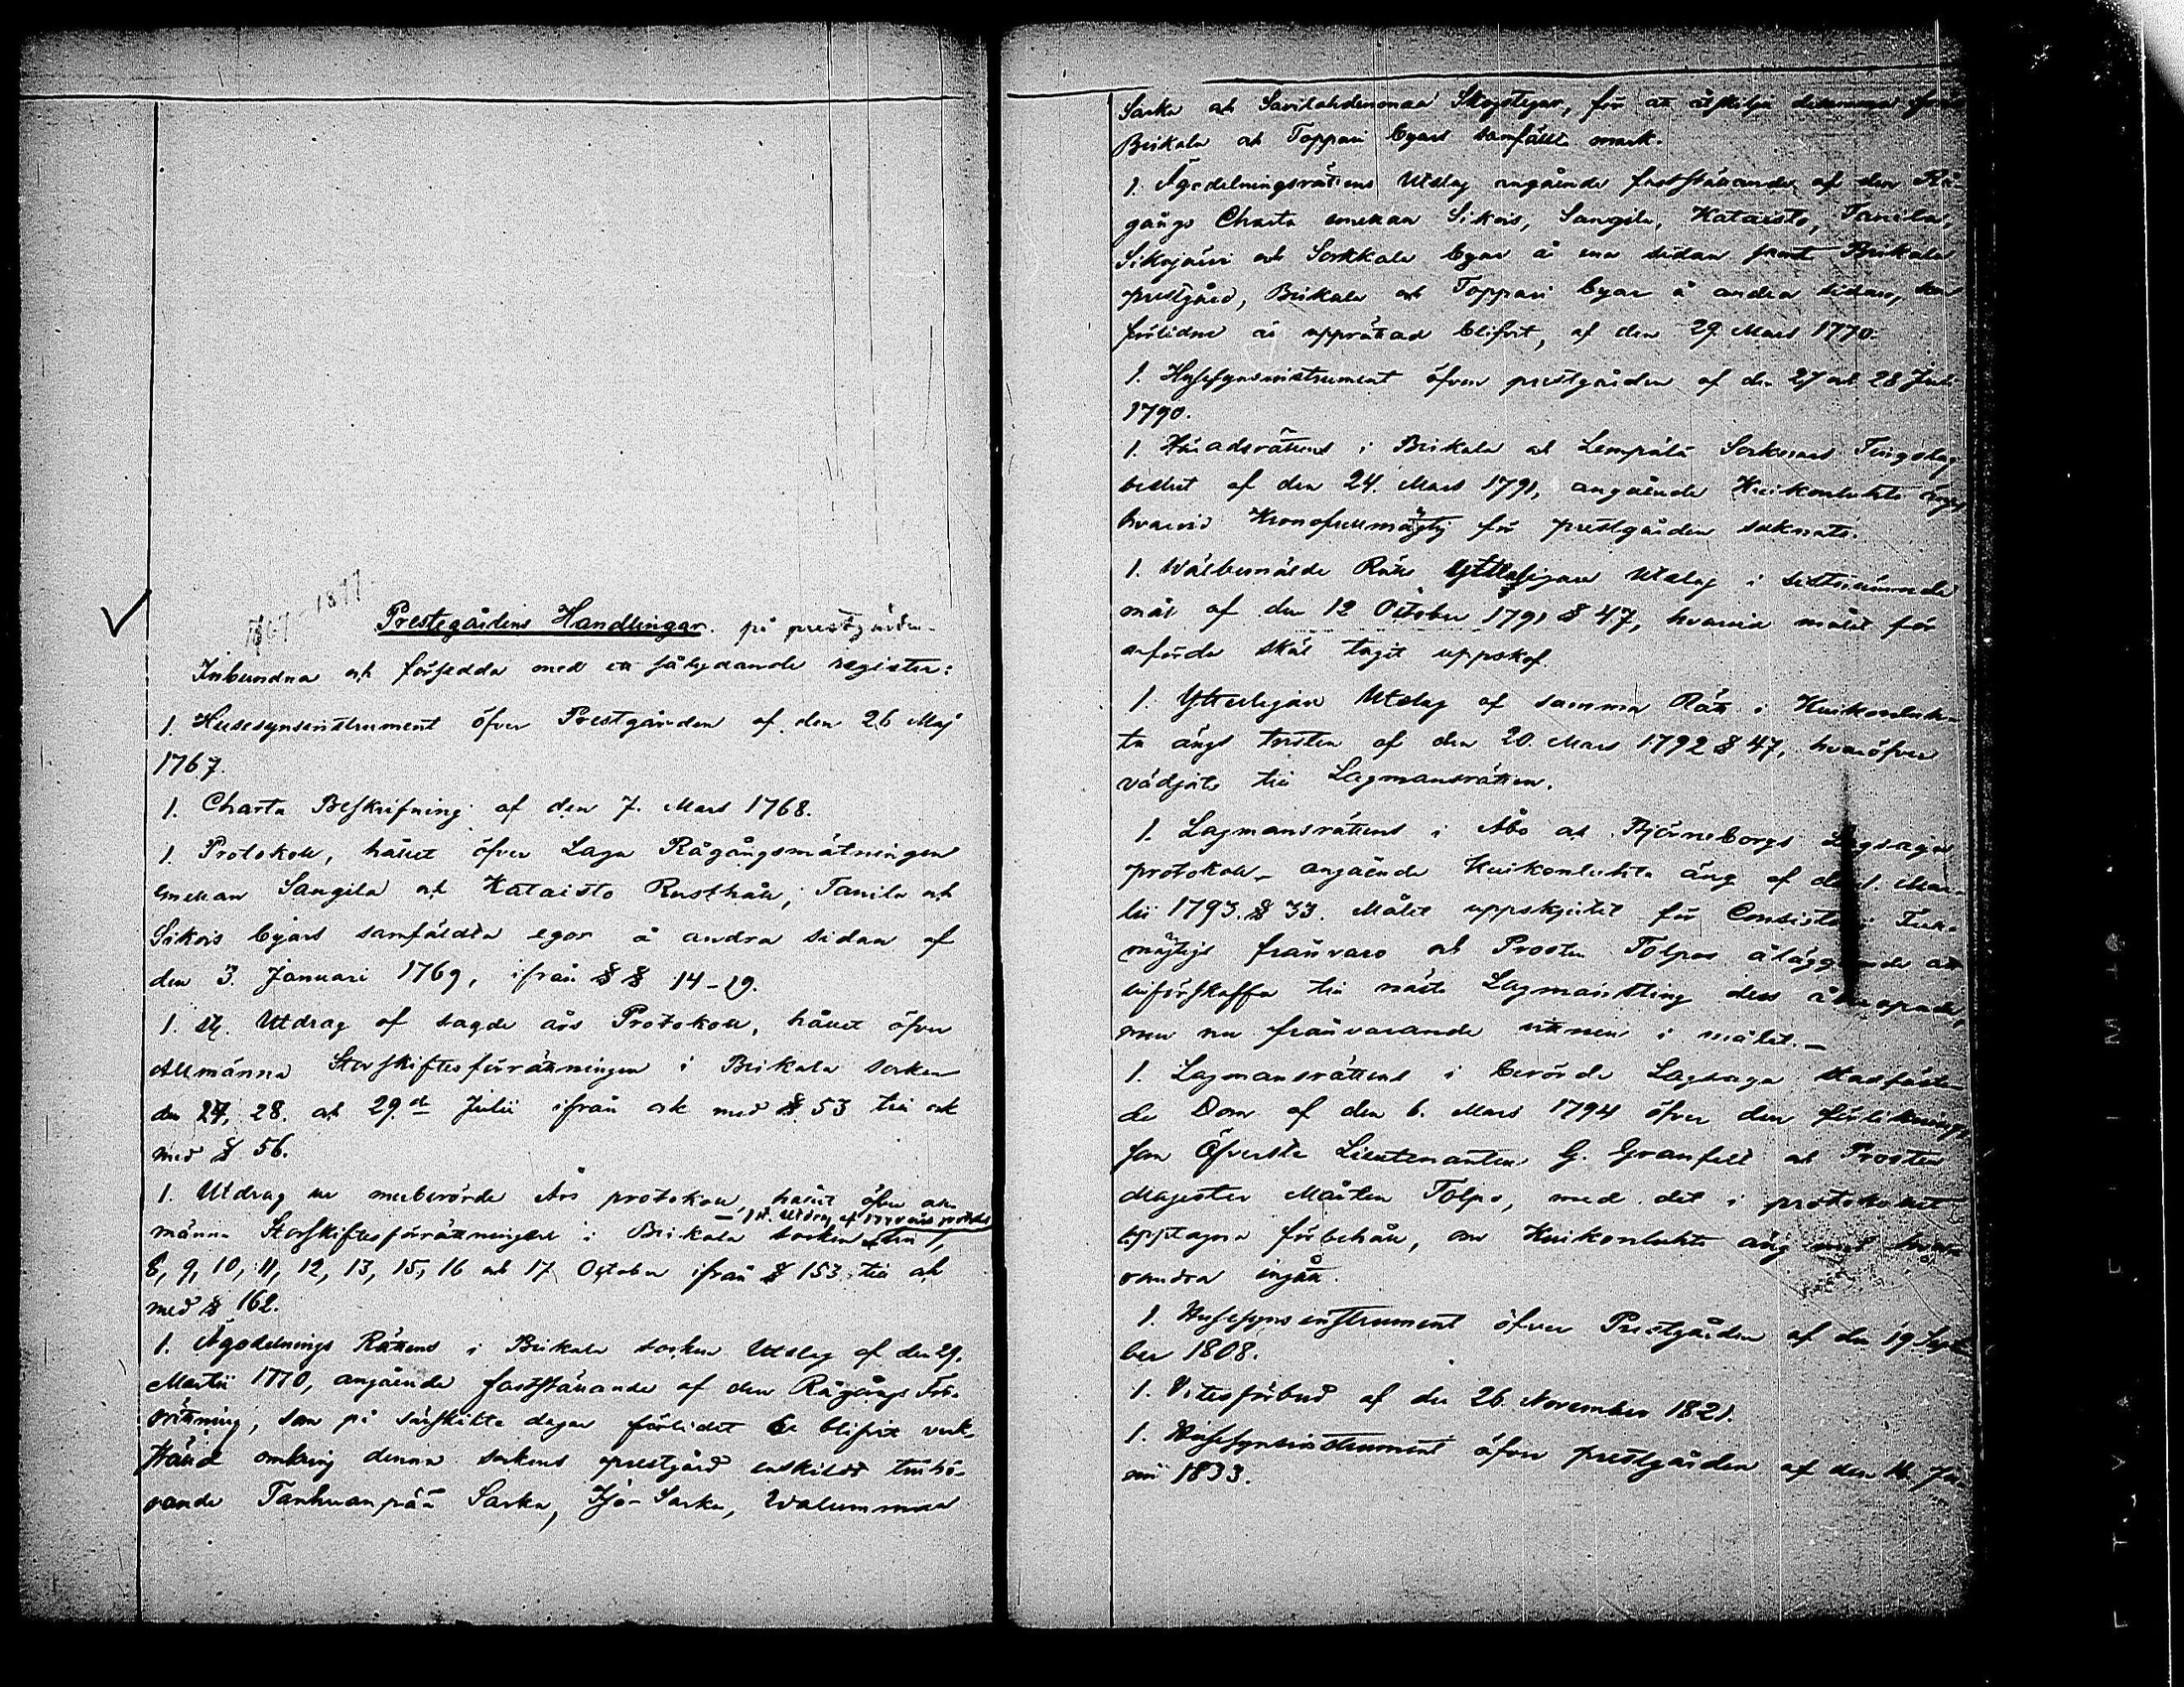 1767-1877
Prestegårdens Handlingar. på prestgården.
Inbundna och försedda med ett sålydande register:
1. Husesynsinstrument öfver Prestgården af den 26 Maj
1767.
1. Charta Beskrifning af den 7. Mars 1768.
1. Protokoll, hållit öfver Laga Rågångsmätningen
emellan Sangila och Kataisto Rusthåll; Tanila och
Sikois byars samfäldta egor å andra sidan af
den 3. Januari 1769, ifrån §§ 14-19.
1. st. Utdrag af sagde års Protokoll, hållit öfver
Allmänna Storskiftesförrättningen i Birkala socken
den 27, 28. och 29.de Julii ifrån och med § 53 till och
med § 56.
1. Utdrag ur merberörde Års protokoll, hållit öfver all-
männa Storskiftesförrättningen i Birkala socken den 7,
8, 9, 10, 11, 12, 13, 15, 16 och 17 October ifrån § 153 till och
med § 162.
1. Ägodelnings Rättens i Birkala socken Utslag af den 29.
Martii 1770, angående fastställande af den Rågångs För-
rättning, som på särskilta dagar förlidet år blifvit verk-
ställd omkring denna sockens prestgård enskildt tillhö-
rande Tanhuanpää Sarka, Iso-Sarka, Walummaa
Sarka och Savilahdenmaa Skogstegar, för att åtskilja desamma från
Birkala och Toppari byars samfällta mark.
1. Ägodelningsrättens Utslag angående fastställande af den Rå-
gångs Charta emellan Sikois, Sangila, Kataisto, Tanila,
Sikojärvi och Sorkkala byar å ena sidan samt Birkala
prestgård, Birkala och Toppari byar å andra sidan, som
förlidne år upprättad blifvit, af den 29 Mars 1770.
1. Husesynsinstrument öfver prestgården af den 27 och 28 Juli
1790.
1. Häradsrättens i Birkala och Lempälä Socknars Tingslag
beslut af den 24. Mars 1791, angående Huikonluhta äng,
hvarvid Kronofullmägtig för prestgården saknats.
1. Wälbemälde Rätts ytterligare Utslag i sistnämnde
mål af den 12 October 1791 § 47, hvarvid målet för
anförda skäl tagit uppskof.
1. Ytterligare Utslag af samma Rätt i Huikonluh-
ta ängs tvisten af den 20. Mars 1792 § 47, hvaröfver
vädjats till Lagmansrätten.
1. Lagmansrättens i Åbo och Björneborgs Lagsaga
protokoll angående Huikonluhta äng af den 1. Mar-
tii 1793. § 33. Målet uppskjutit för Consistorii Full-
mägtigs frånvaro och Prosten Tolpos åläggande att
införskaffa till nästa Lagmansting dess åberopade,
men nu frånvarande vittnen i målet.
1. Lagmansrättens i berörde Lagsaga stadfäste-
de Dom af den 6. Mars 1794 öfver den förlikning,
som Öfverste Lieutenanten G. Granfelt och Prosten
Magister Mårten Tolpo, med det i protokollet
upptagna förbehåll, om Huikonluhta äng med hvar-
randra ingått.
1. Husesynsinstrument öfver Prestgården af den 19 Sept-
ber 1808.
1. Vitesförbud af den 26. November 1821.
1. Husesynsinstrument öfver prestgården af den 16. Ju-
nii 1833.